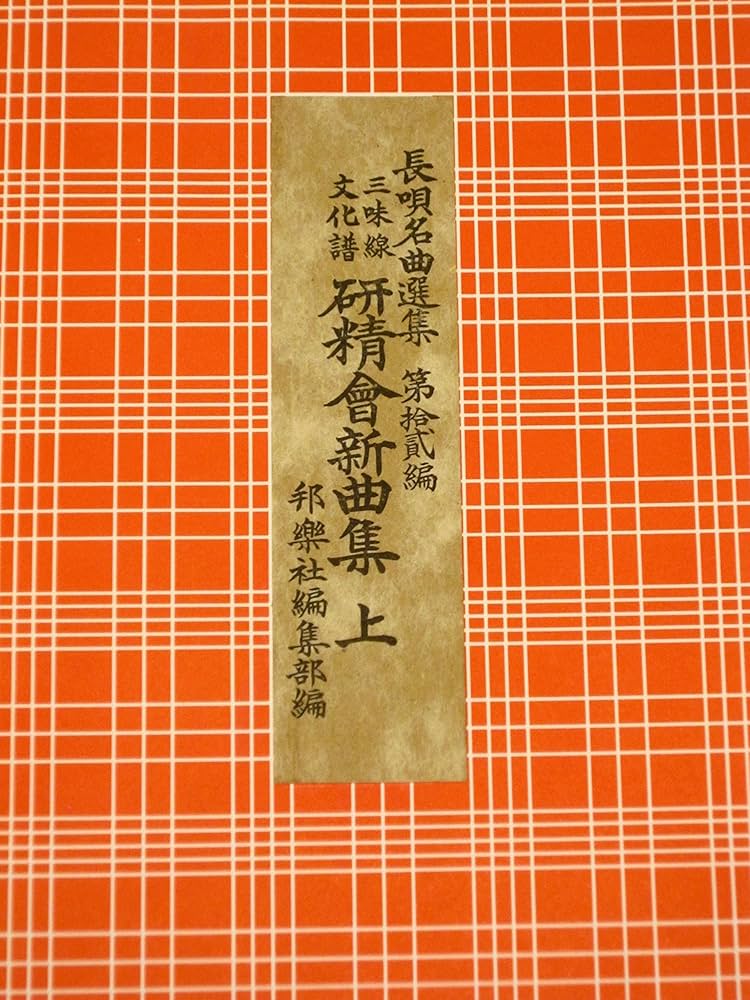 長唄名曲選集 第拾貳編
三味線
文化譜
研精會新曲集 上
邦樂社編集部編